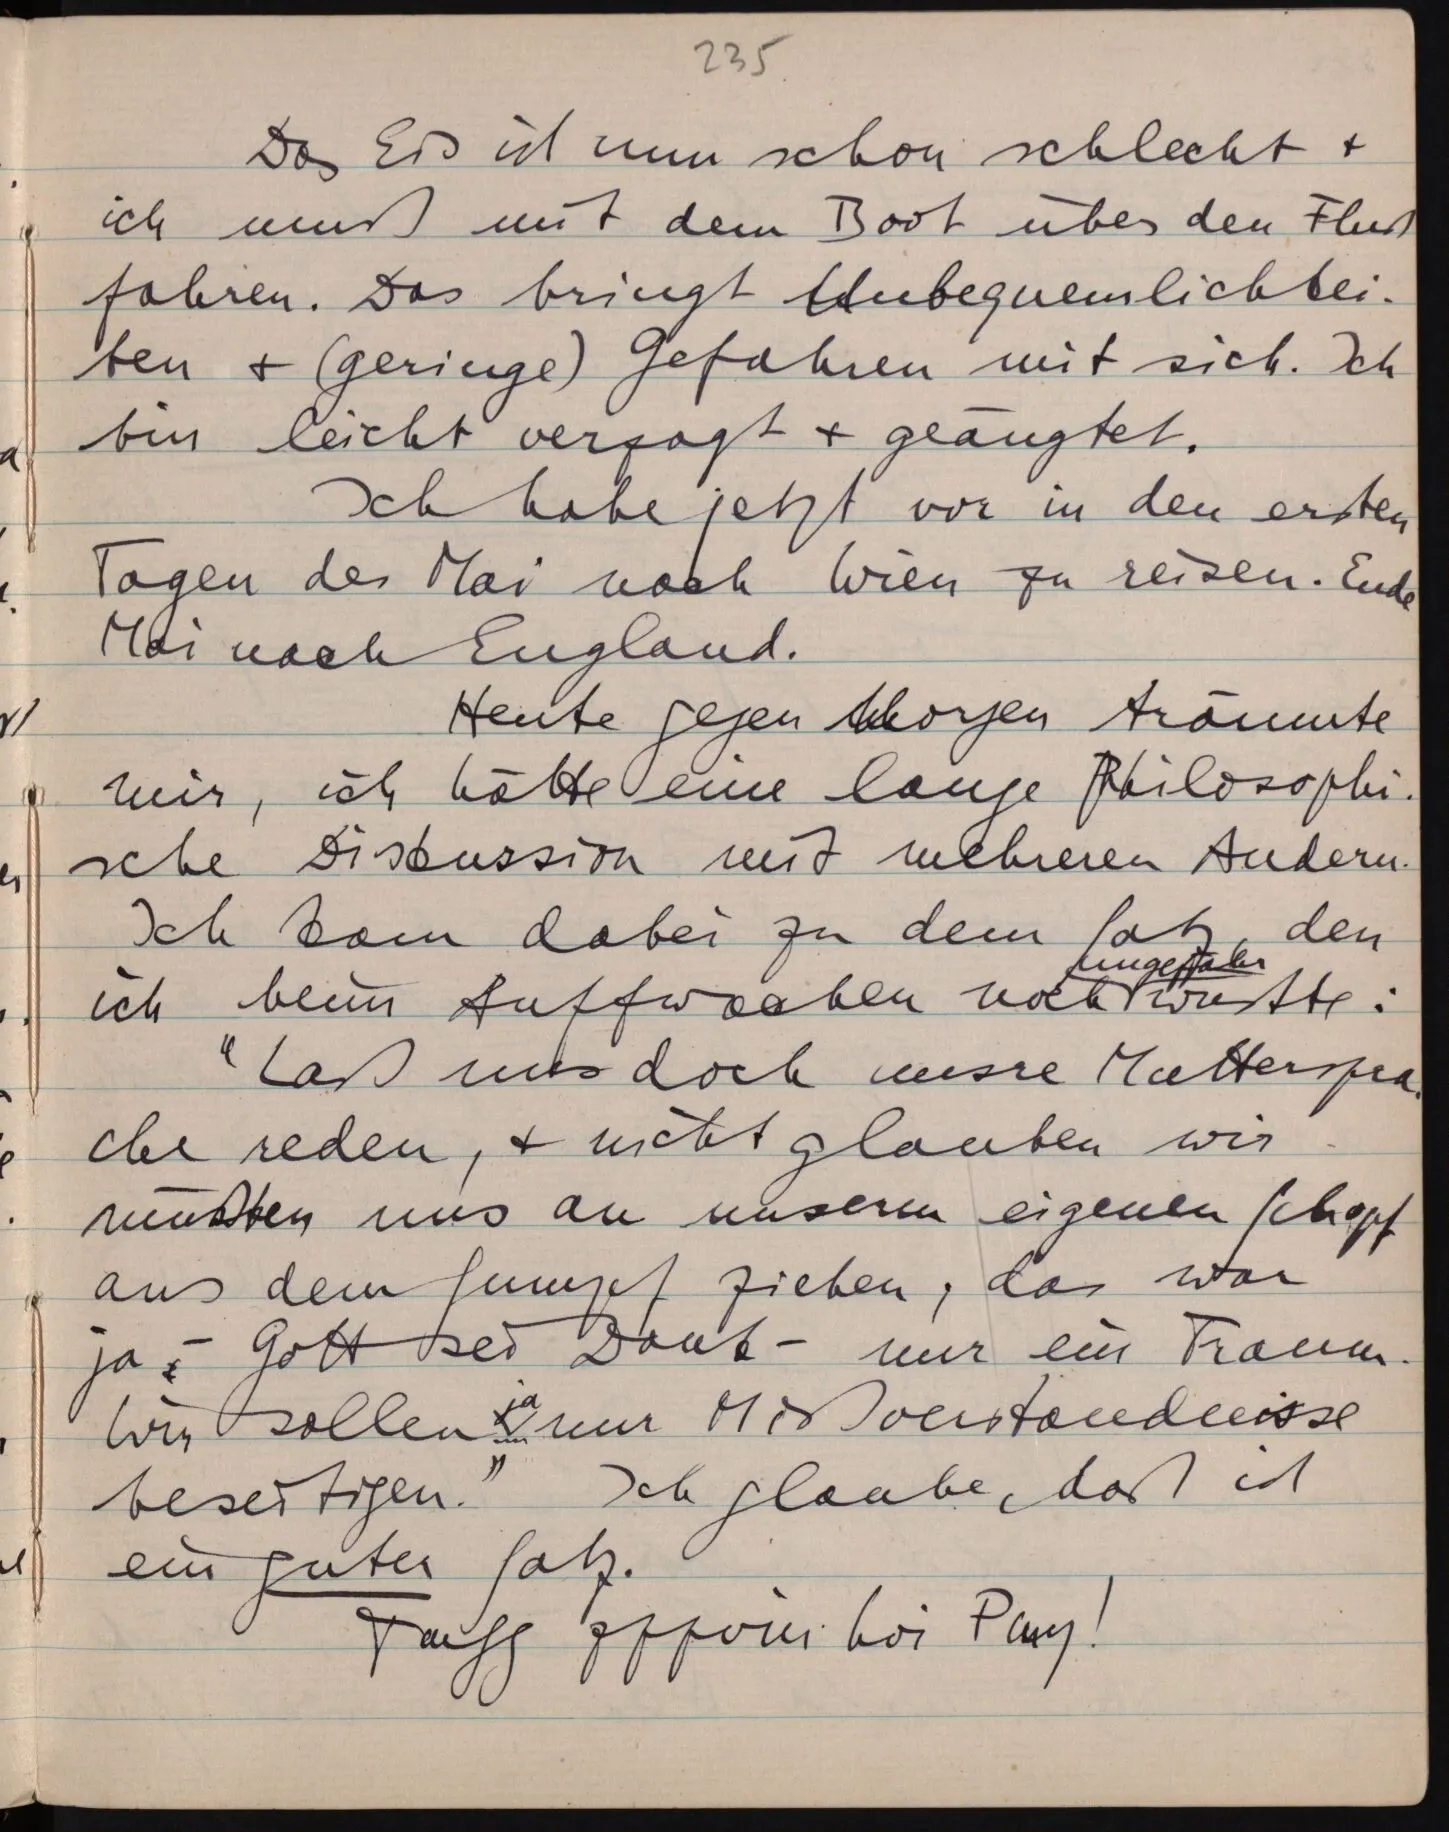 235
Das Eis ist nun schon schlecht +
ich muß mit dem Boot über den Fluß
fahren. Das bringt Unbequemlichkei-
ten + (geringe) Gefahren mit sich. Ich
bin leicht verzagt + geängtet.
Ich habe jetzt vor in den ersten
Tagen des Mai nach Wien zu reisen. Ende
Mai nach England.
Heute gegen Morgen träumte
mir, ich hätte eine lange Philosophi-
sche Diskussion mit mehreren Andern.
Ich kam dabei zu dem Satz, den
ungefähr
ich beim Auffwachen noch wußte:
"Laß uns doch unsre Mutterspra-
che reden, + nicht glauben wir
müßten uns an unserm eigenen Schopf
aus dem Sumpf ziehen; das war
ja – Gott sei Dank – nur ein Traum.
ja
Wir sollen nur Mißverständnisse
beseitigen." Ich glaube, daß ist
ein guter Satz.